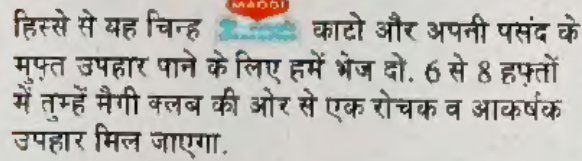 MAGGI
हिस्से से यह चिन्ह काटो और अपनी पसंद के
मुफ्त उपहार पाने के लिए हमें भेज दो. 6 से 8 हफ़्तों
में तुम्हें मैगी क्लब की ओर से एक रोचक व आकर्षक
उपहार मिल जाएगा.